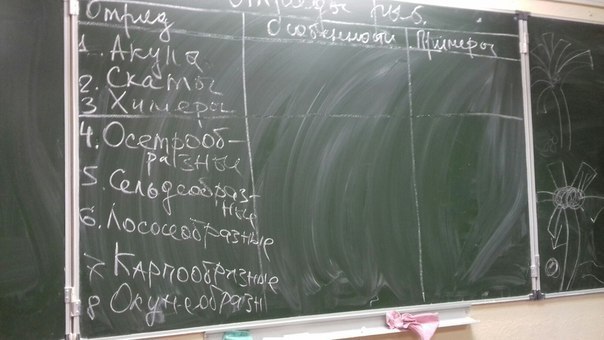 Отряды рыб.
Отряд Особенности Примеры
1. Акула
2. Скаты
3 Химеры
4. Осетрооб-
разные
5. Сельдеобраз-
ные
6. Лососеобразные
7 Карпообразные
8 Окунеобразн